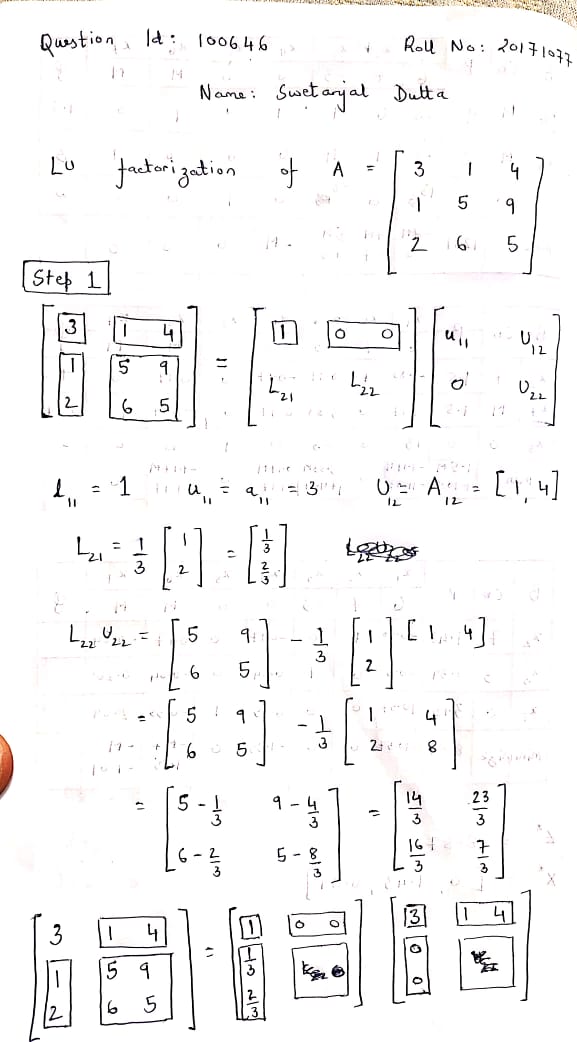 Question Id: 100646 Roll No: 20171077
Name: Swetanjal Dutta
LU factorization of A = [3 1 4
1 5 9
2 6 5]
Step 1
[3 1 4] = [1 0 0] [u₁₁ U₁₂]
[1 5 9
2 6 5] [L₂₁ L₂₂] [0 U₂₂]
l₁₁ = 1 u₁₁ = a₁₁ = 3 U₁₂ = A₁₂ = [1, 4]
L₂₁ = 1/3 [1 2] = [1/3 2/3]
L₂₂ U₂₂ = [5 9
6 5] - 1/3 [1 2] [1, 4]
= [5 9
6 5] - 1/3 [1 4
2 8]
= [5 - 1/3 9 - 4/3
6 - 2/3 5 - 8/3] = [14/3 23/3
16/3 7/3]
[3 1 4] = [1 0 0] [3 1 4]
[1 5 9
2 6 5] [1/3
2/3] [0
0]